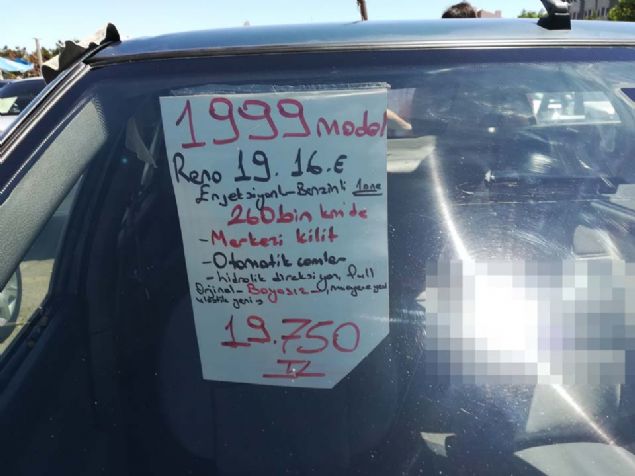 1999 model
Reno 19.16.E
Enjeksiyonl-Benzinli 1 one
260bin km'de
-Merkezi kilit
-Otomatik camlar
-hidrolik direksiyon, full
Orjinal-Boyasız-
lastik yeni
19.750
TL